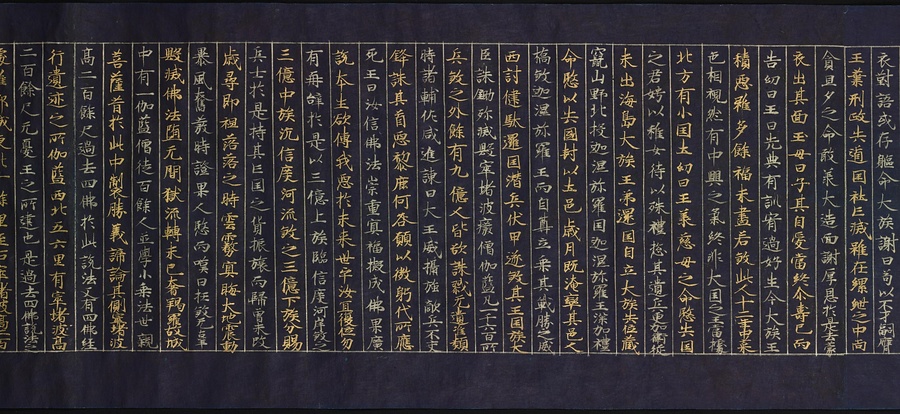 衣對語或存軀命大族謝曰苟以不才嗣膺
王業刑政失道國社亡滅雖在縲紲之中尚
貪旦夕之命敢承大造面謝厚恩於是去蒙
衣出其面王母曰子其自愛當終尒壽已而
告幼日王曰先典有訓宥過好生今大族王
積惡雖久餘福未盡若殺此人十二年中菜
色相視然有中興之氣終非大國之王當據
北方有小國土幼日王承慈母之命愍失國
之君娉以稚女待以殊禮總其遺兵更加衛從
未出海島大族王弟還國自立大族失位藏
竄山野北投迦濕弥羅國迦濕弥羅王深加禮
命愍以失國封以土邑歲月既淹率其邑人
矯殺迦濕弥羅王而自尊立乘其戰勝之威
西討健馱邏國潛兵伏甲遂殺其王國族大
臣誅鋤殄滅毀窣堵波廢僧伽藍凡一千六百所
兵殺之外餘有九億人皆欲誅戮无遺噍類
時諸輔佐咸進諫曰大王威懾強敵兵不交
鋒誅其首惡黎庶何咎願以微躬代所應
死王曰汝信佛法崇重冥福擬成佛果廣
說本生欲傳我惡於未來世乎汝宜復位勿
有再辭於是以三億上族臨信度河流殺之
三億中族沉信度河流殺之三億下族分賜
兵士於是持其亡國之貨振旅而歸曾未改
歲尋即殂落殂落之時雲霧冥晦大地震動
暴風奮發時證果人愍而嘆曰枉殺无辜
毀滅佛法墮无間獄流轉未已奢羯羅故城
中有一伽藍僧徒百餘人並學小乘法世親
菩薩昔於此中製勝義諦論其側窣堵波
高二百餘尺過去四佛於此說法又有四佛經
行遺迹之所伽藍西北五六里有窣堵波高
二百餘尺无憂王之所建也是過去四佛說法之